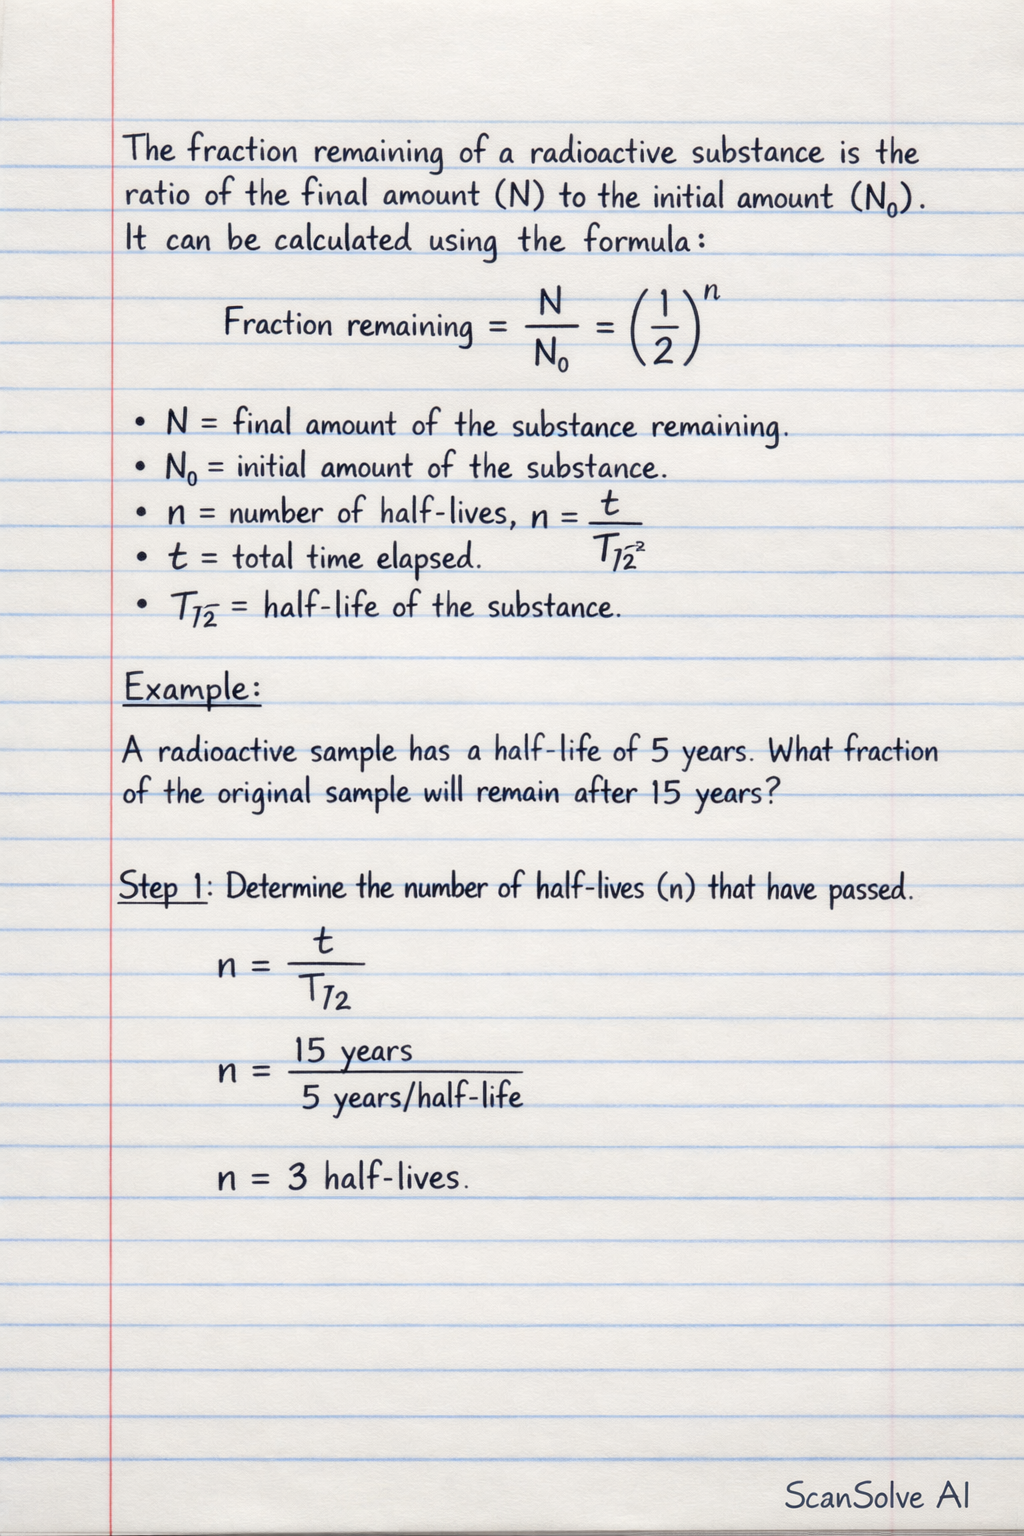 The fraction remaining of a radioactive substance is the
ratio of the final amount (N) to the initial amount (N₀).
It can be calculated using the formula:
Fraction remaining = N/N₀ = (1/2)ⁿ
• N = final amount of the substance remaining.
• N₀ = initial amount of the substance.
• n = number of half-lives, n = t/T½²
• t = total time elapsed.
• T½ = half-life of the substance.
Example:
A radioactive sample has a half-life of 5 years. What fraction
of the original sample will remain after 15 years?
Step 1: Determine the number of half-lives (n) that have passed.
n = t/T½
n = 15 years/5 years/half-life
n = 3 half-lives.
ScanSolve AI